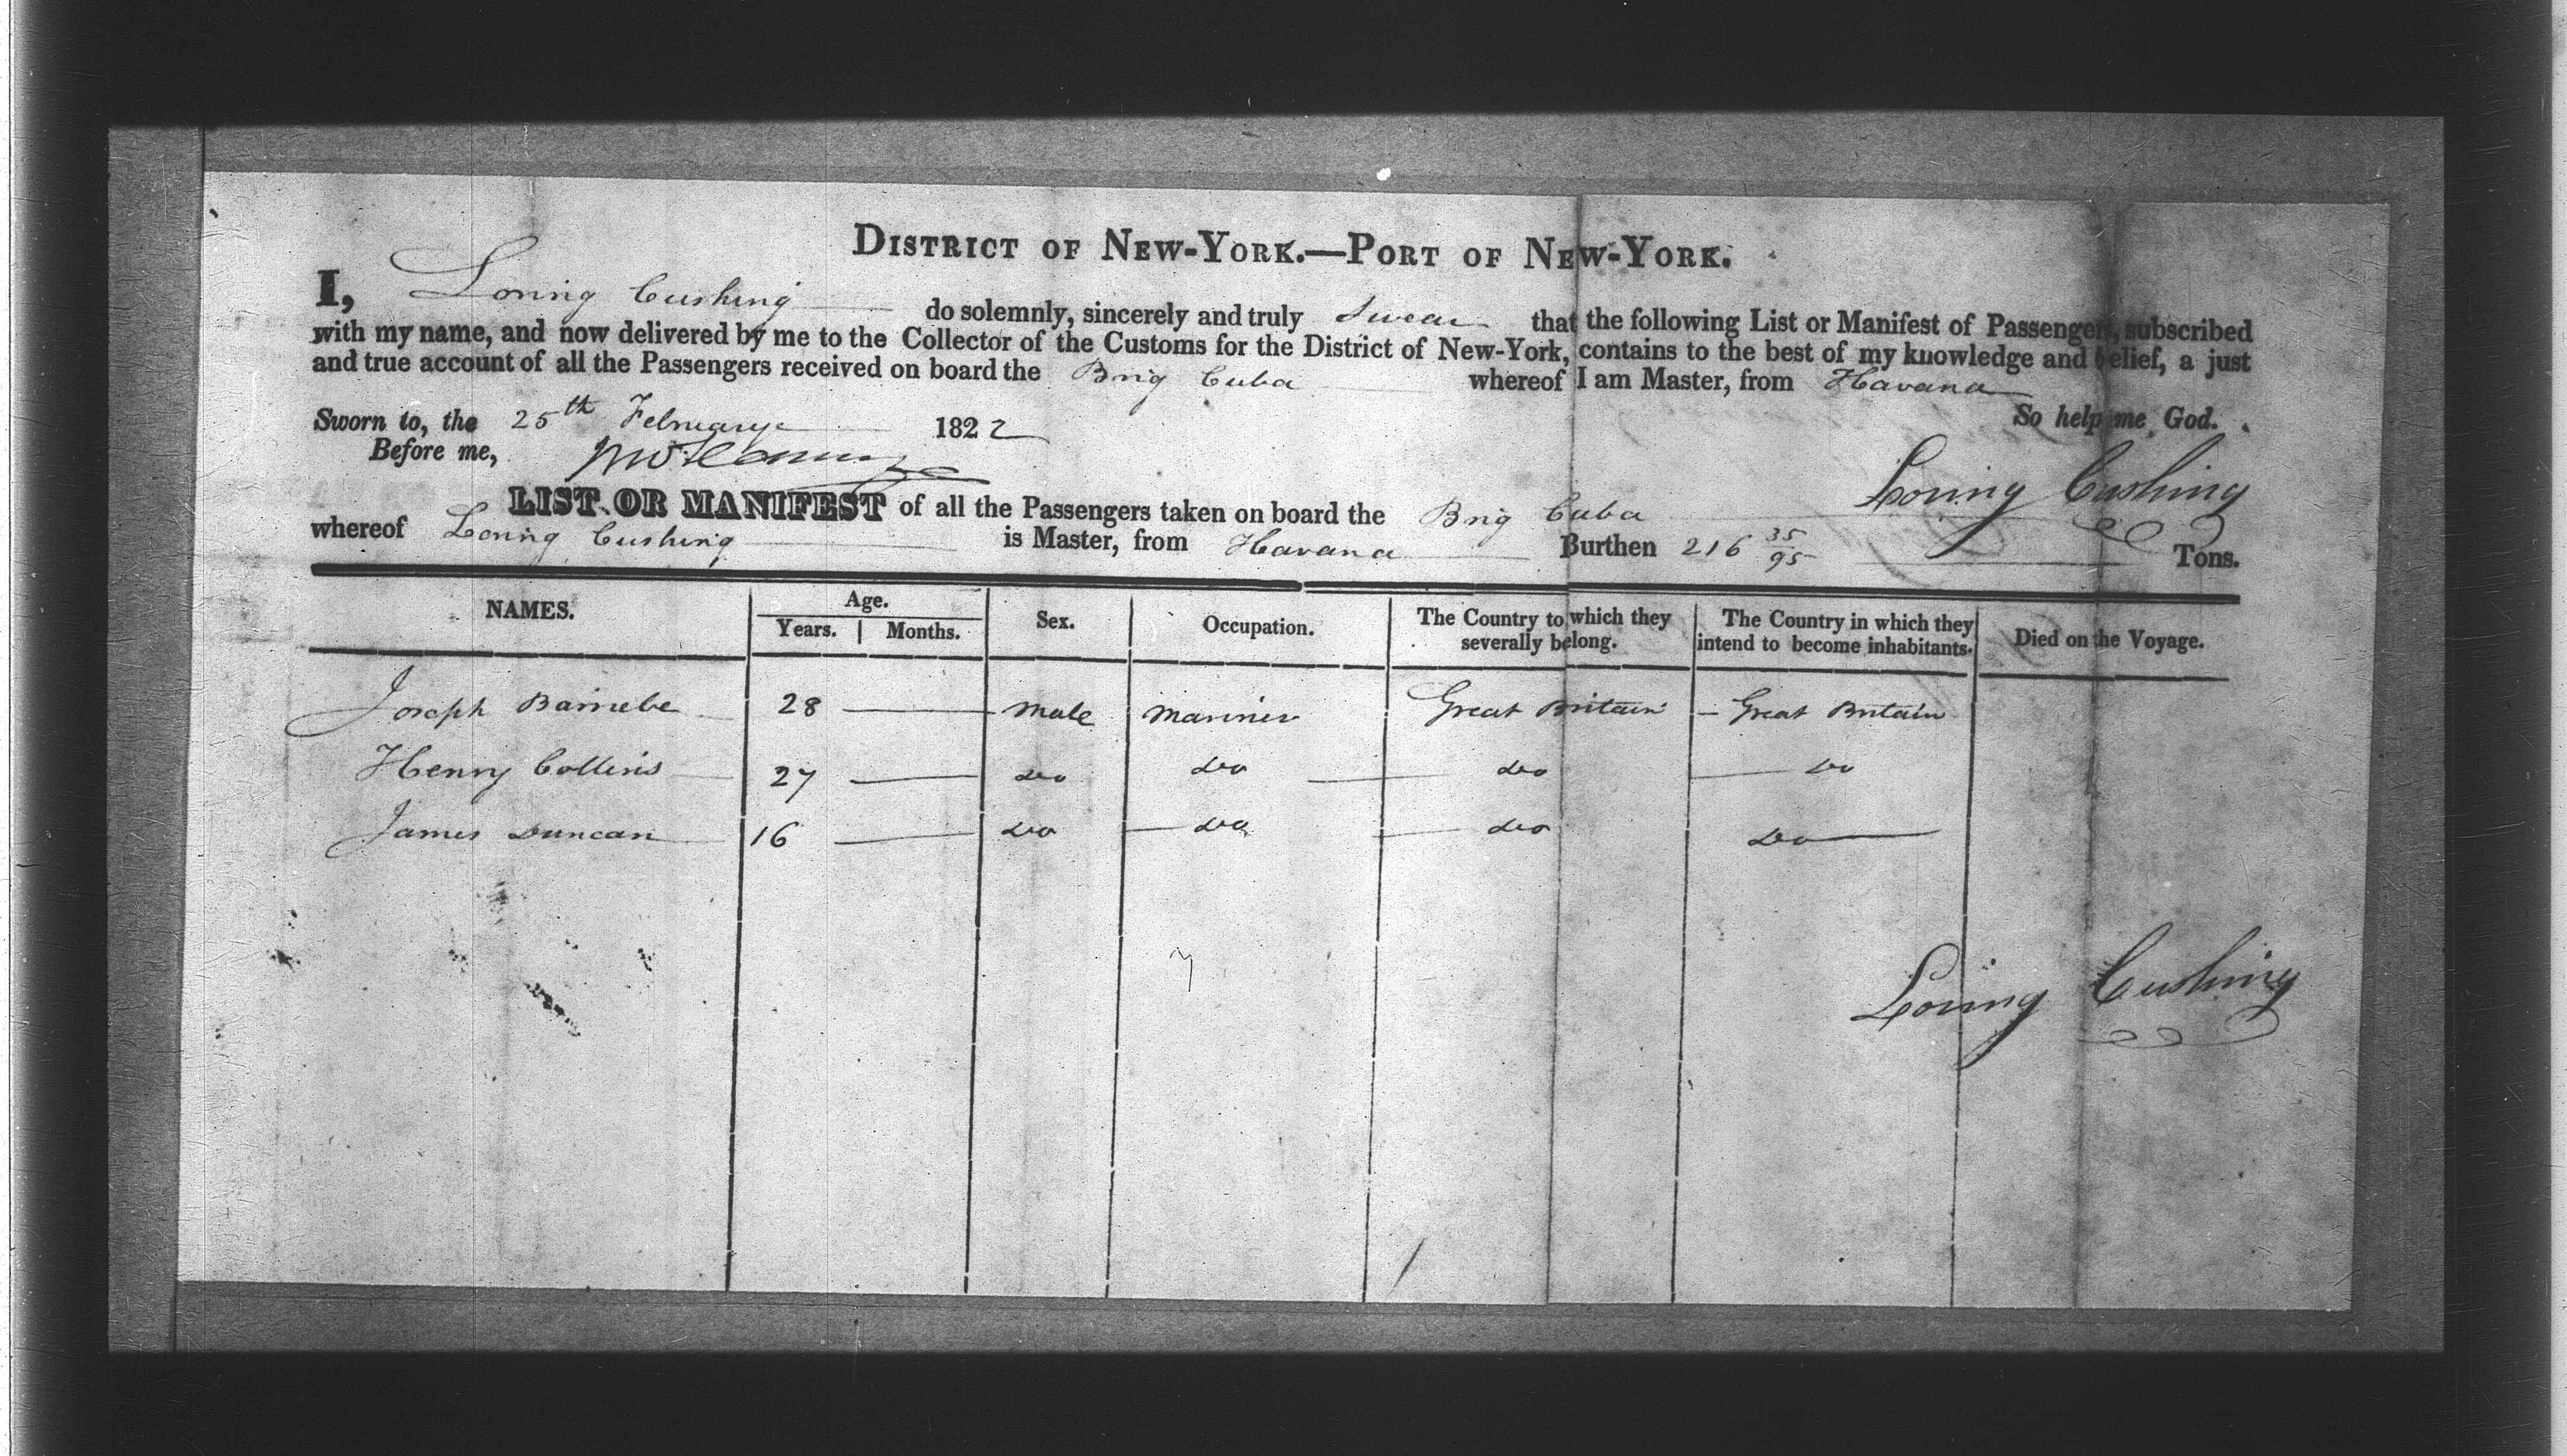 DISTRICT OF NEW-YORK.—PORT OF NEW-YORK.
I, Loring Cushing do solemnly, sincerely and truly Swear that the following List or Manifest of Passengers, subscribed
with my name, and now delivered by me to the Collector of the Customs for the District of New-York, contains to the best of my knowledge and belief, a just
and true account of all the Passengers received on board the Brig Cuba whereof I am Master, from Havana
So help me God.
Sworn to, the 25th February 1822
Before me,
Loring Cushing
LIST OR MANIFEST of all the Passengers taken on board the Brig Cuba
whereof Loring Cushing is Master, from Havana Burthen 216 35/95 Tons.
NAMES. Age. Years. Months. Sex. Occupation. The Country to which they severally belong. The Country in which they intend to become inhabitants. Died on the Voyage.
Joseph Barnebe 28 — Male Mariner Great Britain — Great Britain
Henry Collins 27 — do do — do — do
James Duncan 16 — do — do — do do —
Loring Cushing